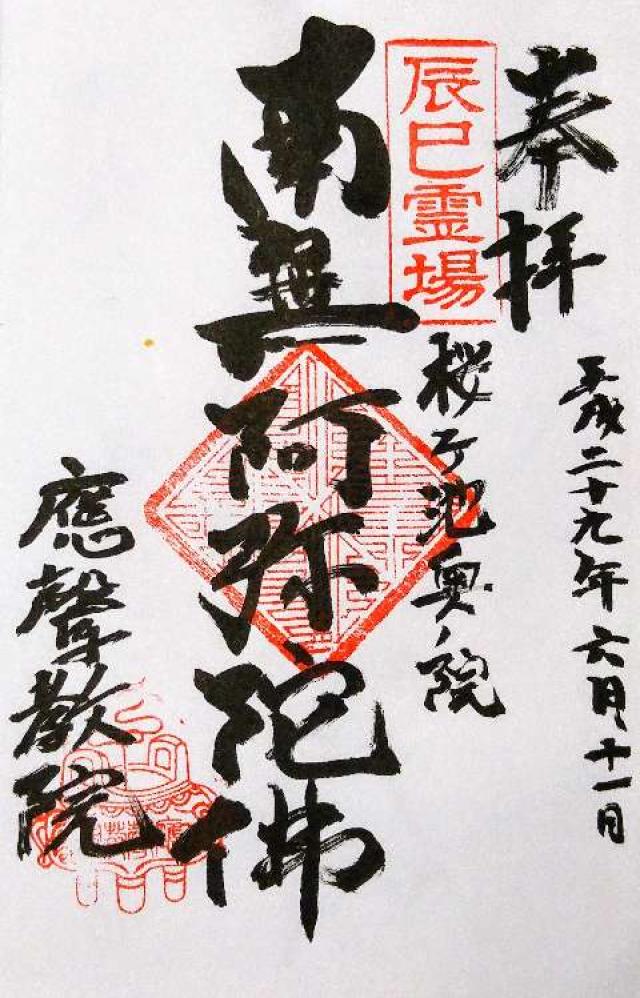 奉拝
平成二十九年六月十一日
辰巳霊場
桜ヶ池奥ノ院
南無阿弥陀佛
應聲教院